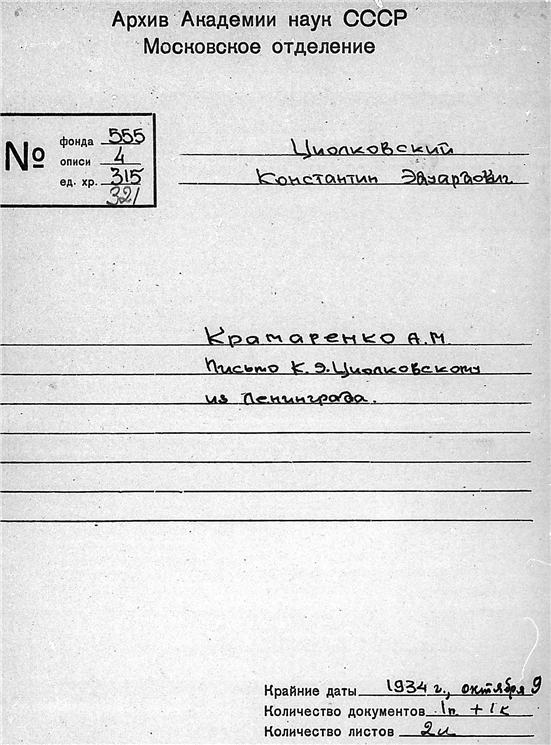 Архив Академии наук СССР
Московское отделение
№
фонда 555
описи 4
ед. хр. 315
321
Циолковский
Константин Эдуардович
Крамаренко А.М.
Письмо К.Э.Циолковскому
из Ленинграда.
Крайние даты 1934 г., октября 9
Количество документов 1п. + 1к
Количество листов 2л